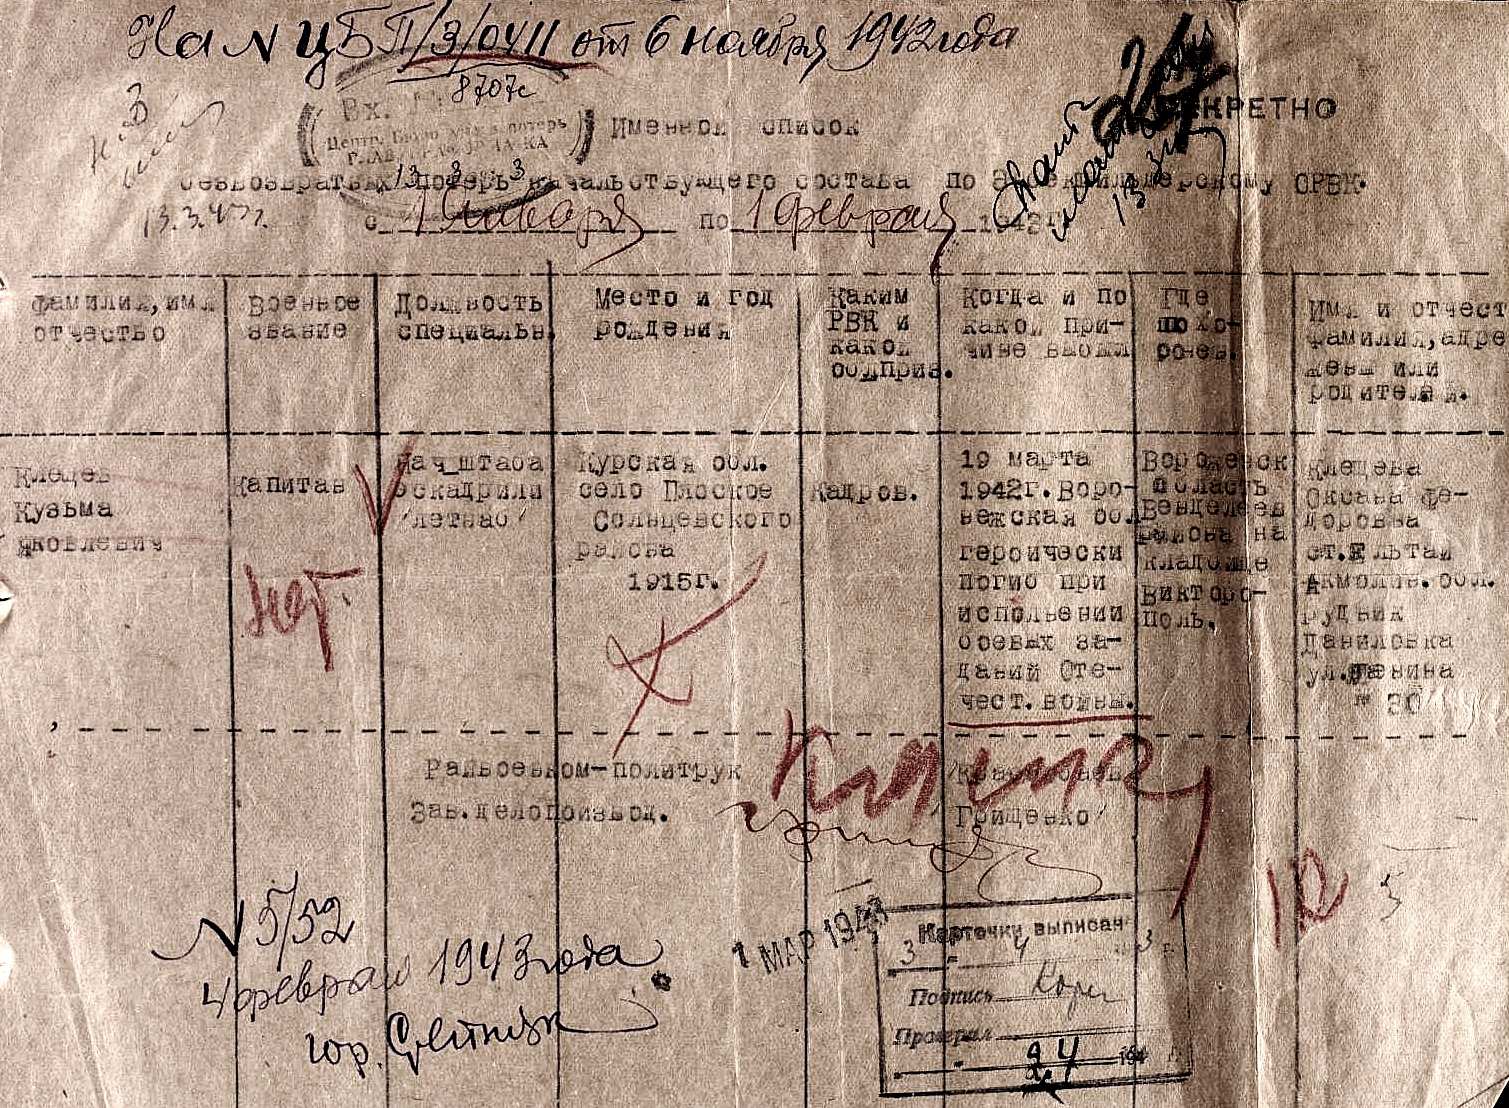 На N ЦБП/3/0411 от 6 ноября 1942 года
8707с
Вх.
Именной список
безвозвратных потерь начальствующего состава по
ОРВК.
13.3.43г.
с 1 Января по 1 февраля 1943г
Фамилия, имя отчество
Военное звание
Должность специальн.
Место и год рождения
Каким РВК и какой обл.призв.
Когда и по какой причине выбыл
Где похоронен.
Имя и отчест фамилия, адре жены или родителей.
Клецев
Кузьма
Яковлевич
Капитан
Нач_штаба
эскадрили
/летнаб/
Курская обл.
село Плоское
Солнцевского
района
1915г.
Кадров.
19 марта
1942г. Воро-
нежская обл.
героически
погиб при
исполнении
боевых за-
даний Оте-
чест. войны.
Воронежск
область
района на
кладбище
Викторо-
поль.
Клецева
Оксана Фе-
доровна
ст. Ельтай
Акмолин. обл.
рудник
Даниловка
ул. Ленина
№ 30
нет.
Райвоенком-политрук
Зав.делопроизвод.
/Грищенко/
N 5/52
4 феврал 1943 года
гор.
1 МАР 1943
Карточки выписал
3 4 3 г.
Подпись
Проверил
9.4 194 г.